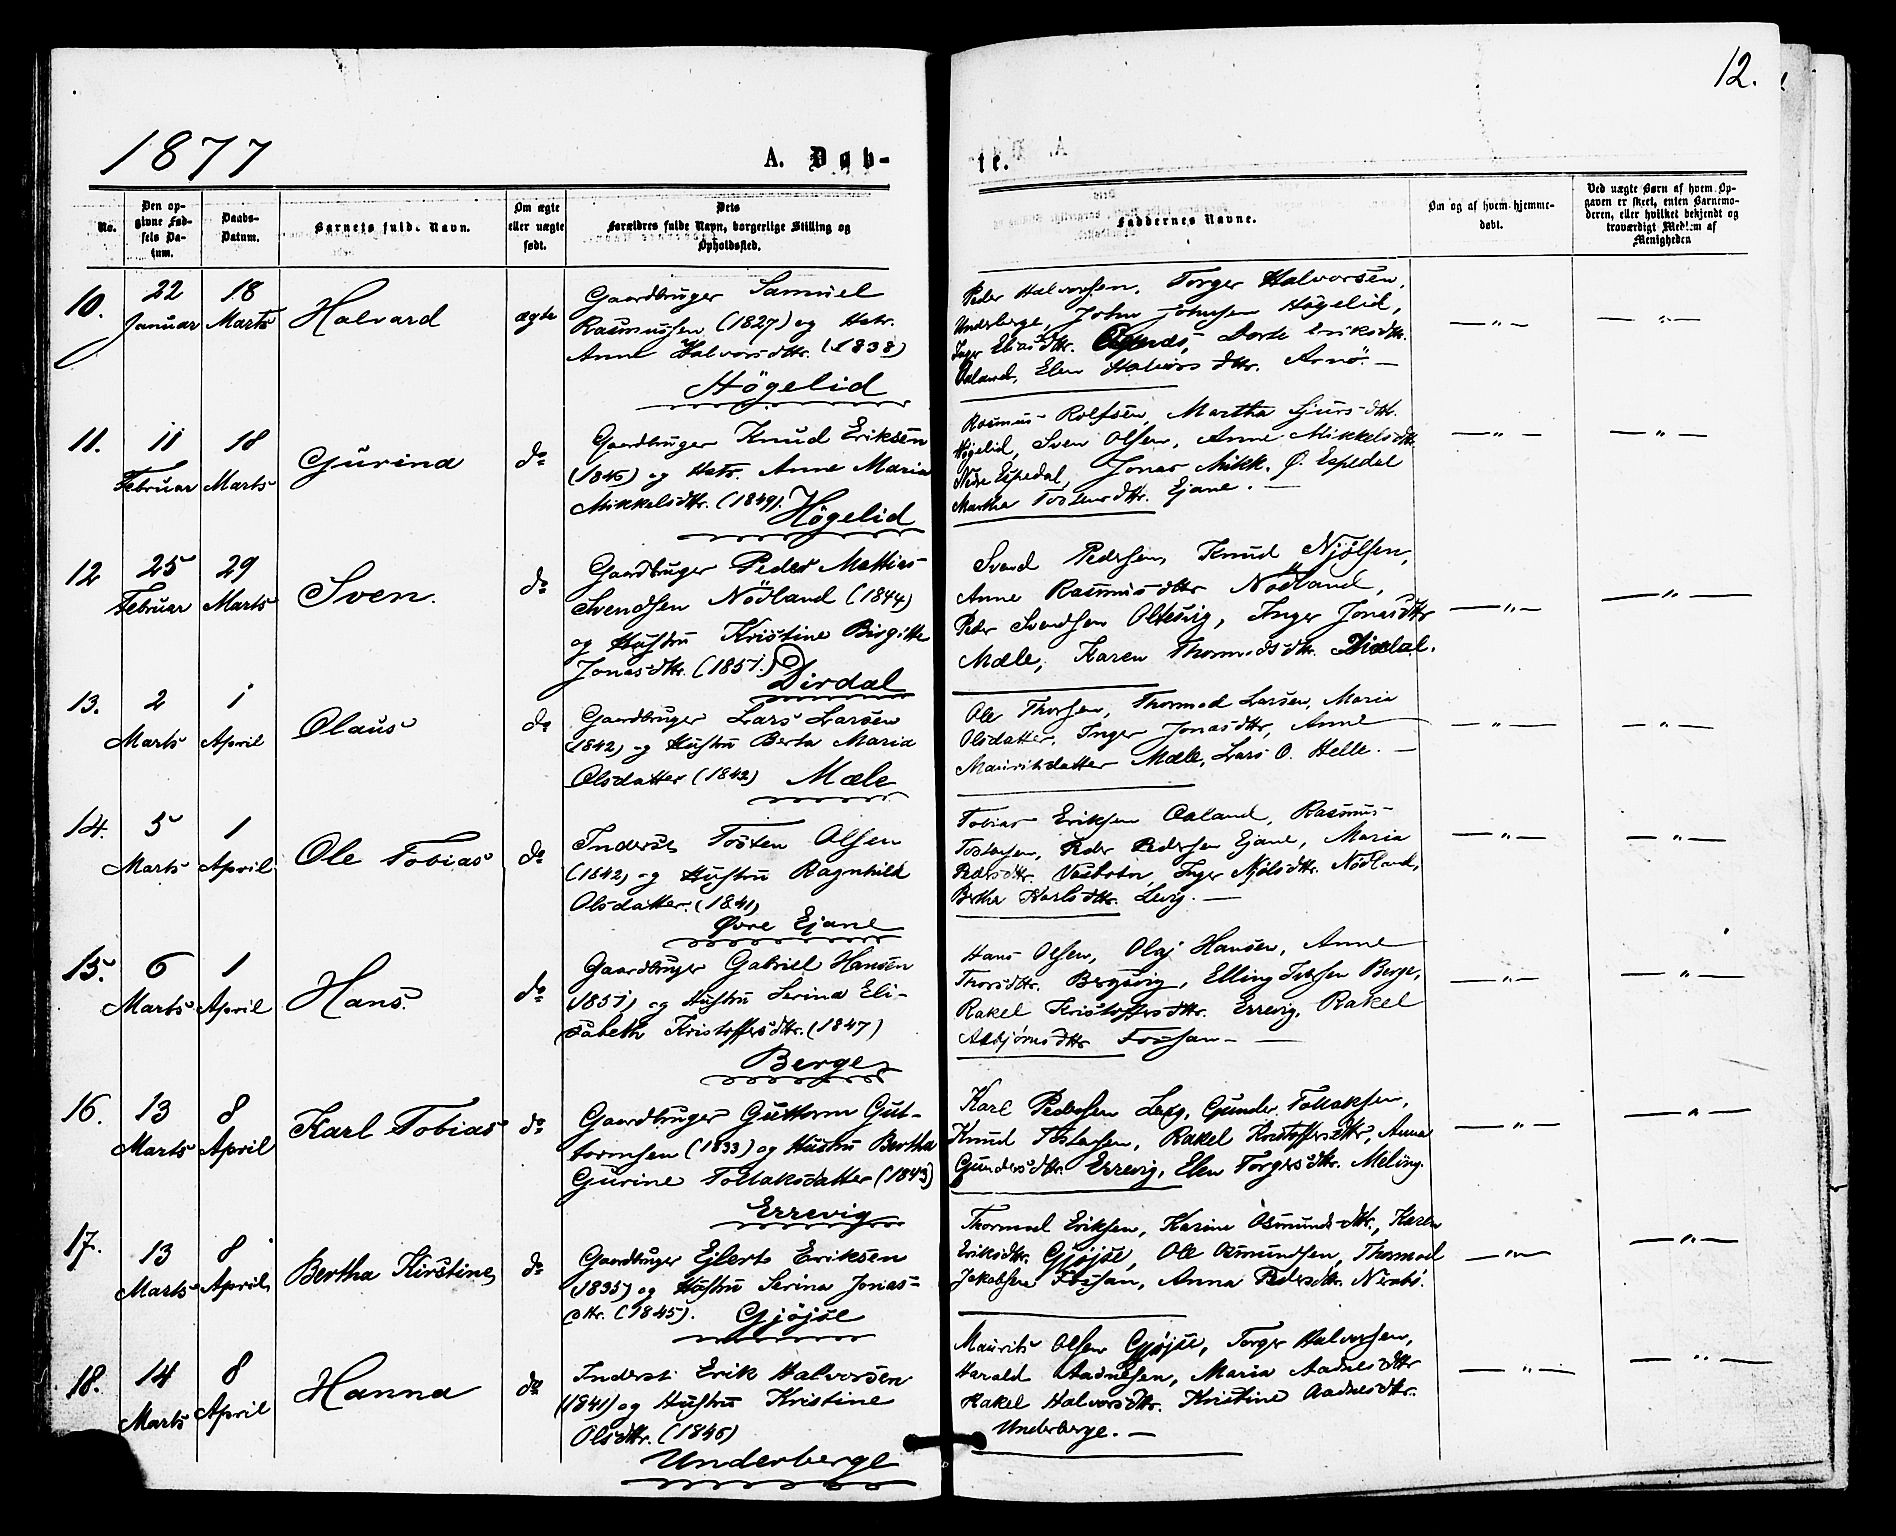 12.
1877
A. Døb-
te.
No.
Den op-
givne Fød-
sels Da-
tum.
Daabs-
Datum.
Barnets fulde Navn.
Om ægte
eller uægte
født.
Dets
Forældres fulde Navn, borgerlige Stilling og
Opholdssted.
Faddernes Navne.
Om og af hvem hjemme-
døbt.
Ved uægte Børn af hvem Op-
gaven er skeet, enten Barnemo-
deren, eller hvilket bekjendt og
troværdigt Medlem af
Menigheden
10.
22
Januar
18
Marts
Halvard
ægte
Gaardbruger Samuel
Rasmussen (1827) og Hstr.
Anne Halvorsdttr. (1838)
Högelid
Peder Halvorsen, Torger Halvorsen,
Underberge, John Johnsen Högelid,
Inger Eliasdttr. Dorte Eriksdttr.
Oaland, Elen Halvorsdttr. Arnö. —
— " —
— " —
11.
11
Februar
18
Marts
Gurina
do
Gaardbruger Knud Eriksen
(1846) og Hstr. Anne Maria
Mikkelsdttr. (1849).
Högelid
Rasmus Rolfsen, Martha Sjursdttr.
Högelid, Sven Olsen, Anne Mikkelsdttr.
Nedre Espedal, Jonas Mikk. Ø. Espedal
Martha Tostensdttr. Ejane. —
— " —
— " —
12
25
Februar
29
Marts
Sven.
do
Gaardbruger Peder Mathias
Svendsen Nödland (1844)
og Hustru Kristine Birgitte
Jonasdttr. (1851.)
Dirdal
Svend Pedersen, Knud Njölsen,
Anne Rasmusdttr Nödland,
Peder Svendsen Oltesvig, Inger Jonasdttr
Mæle, Karen Thormodsdttr. Dirdal.
— " —
— " —
13.
2
Marts
1
April
Olaus
do
Gaardbruger Lars Larsen
(1842) og Hustru Berta Maria
Olsdatter (1842)
Mæle
Ole Thorsen, Thormod Larsen, Maria
Olsdatter, Inger Jonasdttr, Anne
Mauritsdatter Mæle, Lars O. Helle. —
— " —
— " —
14.
5
Marts
1
April
Ole Tobias
do
Inderst Tosten Olsen
(1842) og Hustru Ragnhild
Olsdatter. (1841)
Øvre Ejane
Tobias Eriksen Oaland, Rasmus
Tostensen, Peder Pedersen Ejane, Maria
Pedersdttr. Vasbotn, Inger Njölsdttr. Nödland,
Bertha Karlsdttr. Levig. —
— " —
— " —
15.
6
Marts
1
April
Hans.
do
Gaardbruger Gabriel Hansen
(1851) og Hustru Serina Eli-
sabeth Kristoffersdttr. (1847)
Berge
Hans Olsen, Olaj Hansen, Anne
Thorsdttr. Bergsvig, Elling Iversen Berge,
Rakel Kristoffersdttr. Errevig, Rakel
Asbjørnsdttr Fossan — —
— " —
— " —
16.
13
Marts
8
April
Karl Tobias
do
Gaardbruger Guttorm Gut-
tormsen (1833) og Hustru Bertha
Gurine Tollaksdatter (1843)
Errevig
Karl Pedersen Levig, Gunder Tollaksen,
Knud Tostensen, Rakel Kristoffersdttr, Anna
Gundersdttr. Errevig, Elen Torgersdttr. Meling.
— " —
— " —
17.
13
Marts
8
April
Bertha Kirstine
do
Gaardbruger Ejlerts Eriksen
(1835) og Hustru Serina Jonas-
dttr. (1845).
Gjøjse
Thormod Eriksen, Karine Osmundsdttr., Karen
Eriksdttr. Gjøjse, Ole Osmundsen, Thormod
Jakobsen Fossan, Anna Pedersdttr.
— " —
— " —
18.
14
Marts
8
April
Hanna
do
Inderst Erik Halvorsen
(1841) og Hustru Kristine
Olsdttr. (1846)
Underberge
Maurits Olsen Gjøjse, Torger Halvorsen,
Harald Aadnesen, Maria Aadnesdttr
Rakel Halvorsdttr. Kristine Aadnesdttr.
Underberge. —
— " —
— " —